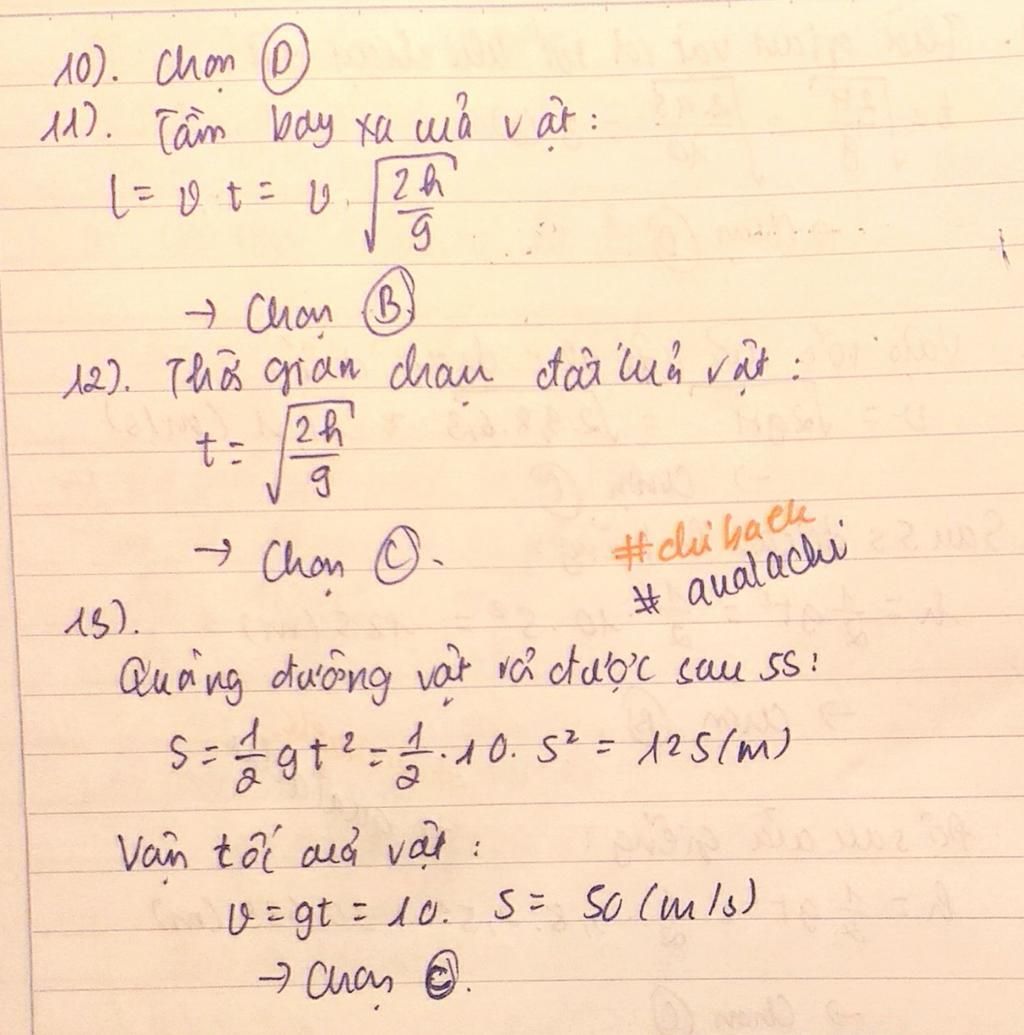 10). Chọn D
11). Tầm bay xa của vật:
l = v t = v. √(2h/g)
→ Chọn B
12). Thời gian chạm đất của vật:
t = √(2h/g)
→ Chọn C.
#chiback
# aualachi.
13).
Quãng đường vật rơi được sau 5s:
S = 1/2 gt² = 1/2 . 10. 5² = 125(m)
Vận tốc của vật:
v = gt = 10. 5 = 50 (m/s)
→ Chọn C.